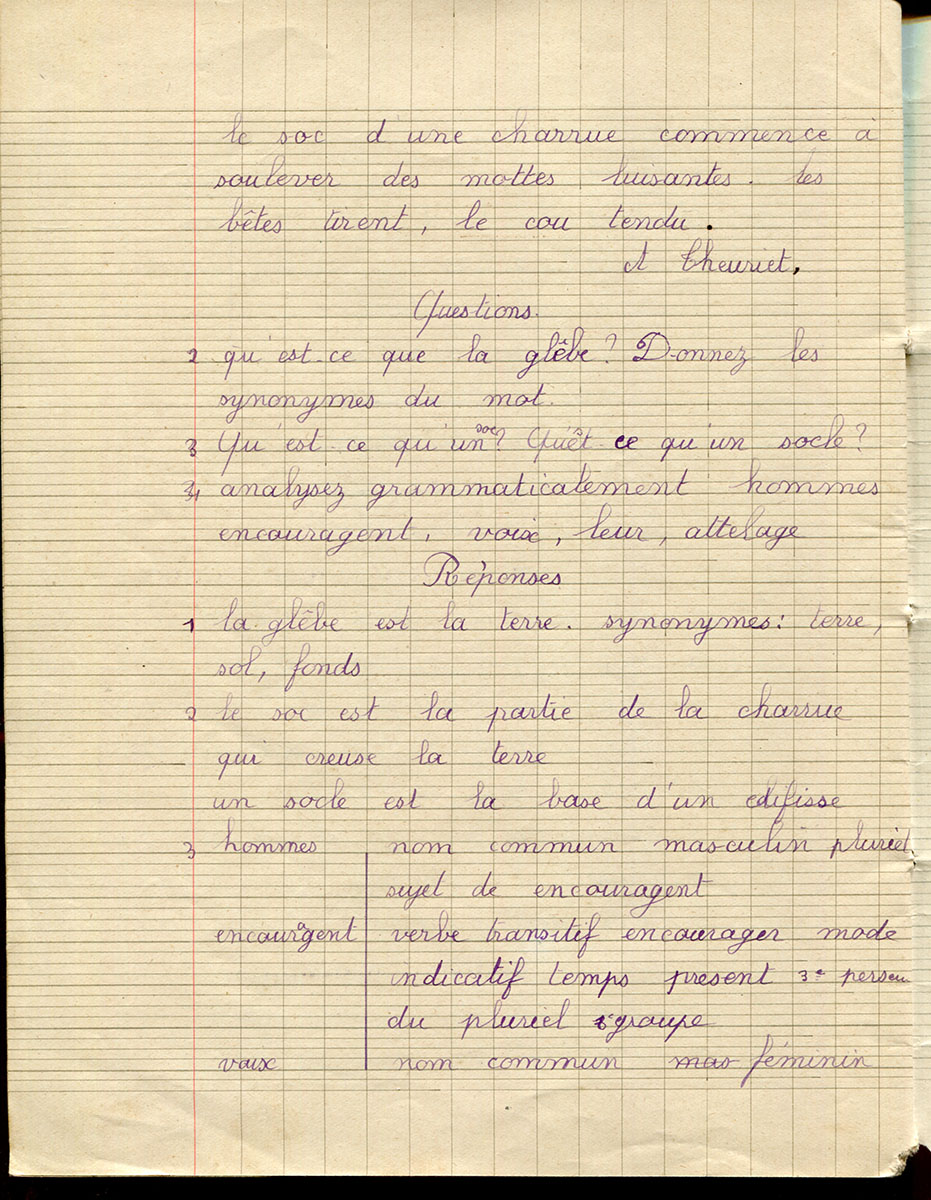 le soc d'une charrue commence a
soulever des mottes luisantes. les
bêtes tirent, le cou tendu.
A Theuriet,
Questions.
2 qu'est-ce que la glêbe? Donnez les
synonymes du mot.
3 Qu'est-ce qu'un soc? Qu'êt ce qu'un socle?
3, analysez grammaticalement hommes
encouragent, voix, leur, attelage
Réponses
1 la glêbe est la terre. synonymes: terre,
sol, fonds
2 le soc est la partie de la charrue
qui creuse la terre
un socle est la base d'un edifisse
3 hommes nom commun masculin pluriel
sujet de encouragent
encouragent verbe transitif encourager mode
indicatif temps present 3e person
du pluriel groupe
voix nom commun mas féminin